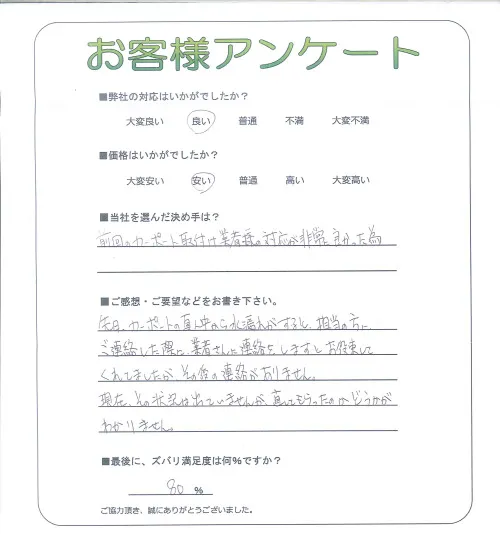 お客様アンケート
■弊社の対応はいかがでしたか？
大変良い 良い 普通 不満 大変不満
■価格はいかがでしたか？
大変安い 安い 普通 高い 大変高い
■当社を選んだ決め手は？
前回のカーポート取付け業者様の対応が非常に良かった為
■ご感想・ご要望などをお書き下さい。
先日、カーポートの真ん中から水漏れがすると、担当の方に
ご連絡した際に、業者さんに連絡をしますとお約束して
くれてましたが、その後の連絡がありません。
現在、その状況は出ていませんが、直してもらったのかどうかが
わかりません。
■最後に、ズバリ満足度は何%ですか？
80 %
ご協力頂き、誠にありがとうございました。